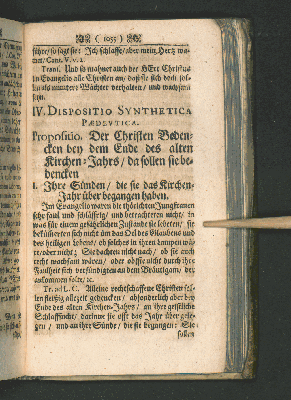 ( 1055 )
führe/ so sagt sie: Ich schlaffe/ aber mein Hertz wa-
cht/ Cant. V. v. 2.
Trans. Und so mahnet auch der HErr Christus
in Evangelio alle Christen an/ daß sie sich doch sol-
len als muntere Wächter verhalten/ und wachsam
seyn.
IV. DISPOSITIO SYNTHETICA
PÆDEVTICA.
Propositio. Der Christen Beden-
cken bey dem Ende des alten
Kirchen-Jahrs/ da sollen sie be-
dencken
1. Ihre Sünden/ die sie das Kirchen-
Jahr über begangen haben.
Im Evangelio waren die thörichten Jungfrauen
sehr faul und schläfferig/ und betrachteten nicht/ in
was für einem gefährlichen Zustande sie lebeten/ sie
bekümerten sich nicht um das Oel des Glaubens und
des heiligen Lebens/ ob solches in ihren Lampen wä-
re oder nicht; Sie dachten nicht nach/ ob sie auch
recht wachsam wären/ oder ob sie nicht durch ihre
Faulheit sich versündigten an dem Bräutigam/ der
ankommen solte/ &c.
Tr. ad L. C. Alleine rechtschaffene Christen sol-
len fleißig allezeit gedencken/ absonderlich aber bey
Ende des alten Kirchen-Jahrs/ an ihre geistliche
Schlaffsucht/ darinne sie offt das Jahr über gele-
gen/ und an ihre Sünde/ die sie begangen: Sie
sollen